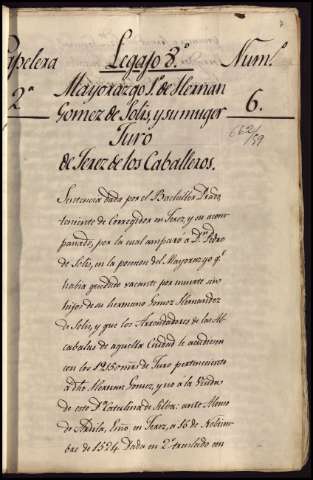 7
Papelera Legajo 8.º Num.º
2.ª Mayorazgo 1.º de Hernan 6.
Gomez de Solis, y su muger
Juro
de Jerez de los Caballeros.
662/59
Sentencia dada por el Bachiller Prado,
teniente de Corregidor en Jerez, y su acom-
pañado, por la cual amparó a D.ⁿ Pedro
de Solis, en la posesion del Mayorazgo q.ᵉ
habia quedado vacante por muerte sin
hijos de su hermano Gomez Hernandez
de Solis, y que los Arrendadores de las Al-
cabalas de aquella Ciudad le acudiesen
con los mrs de Juro perteneciente
a dho. Hernan Gomez, y no à la Viuda
de este D.ª Catalina de Silba: ante Alonso
de Padilla, Esño en Jerez, a 15 de Nobiem-
bre de 1524. Dada en 2.º traslado con